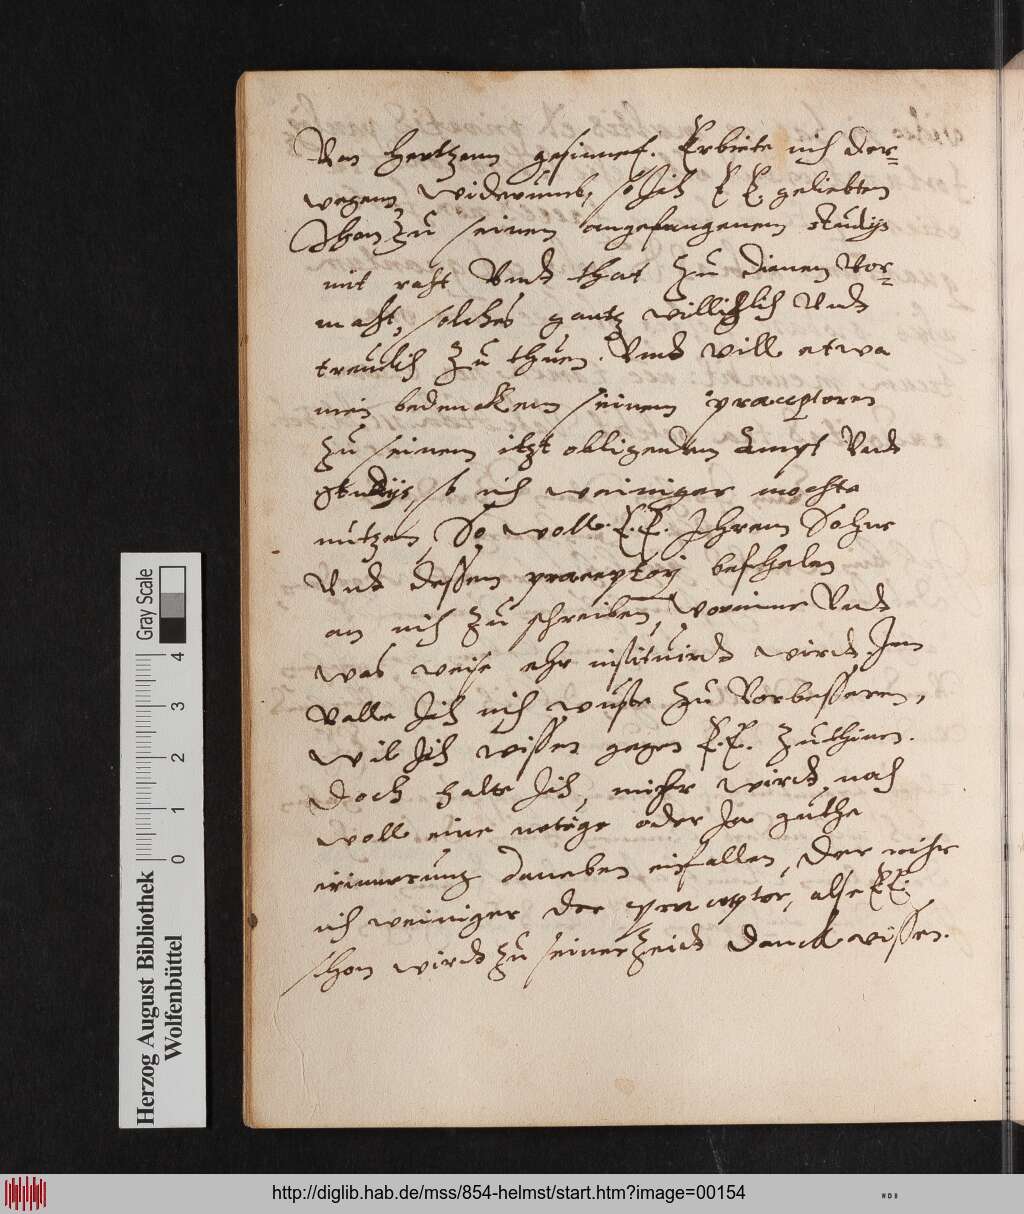 Von hertzenn gesinnet. Erbiete mich der-
wegenn widerumb, so Ich E E geliebten
Shon zu seinem angefangenem studijs
mit raht Vnd that zu dienen Vor-
macht, solches gantz willichlich Vnd
treulich zu thuen. Vnd will etwa
mein bedenckenn seinem praeceptoren
zu seinem itzt obligenden ampt Vnd
studijs so nich weiniger mochte
nutzen, So wolle E. E. Ihrem Sohne
Vnd dessem praeceptorj befehelen
an mich zu schreiben, worinne Vnd
was weise ehr instituirdt wirdt Im
Valle Ich nich wuste zu Vorbesseren,
Wil Ich wissen gegen E. E. zu
Doch halte Ich, mihr wirdt noch
woll eine notige oder Ja guthe
erinnerung daneben einfallen, der mihr
nich weiniger der praeceptor, alse E E.
schon wirdt zu seiner Zeidt danck wissen.
Gray Scale
4
3
2
1
0
Herzog August Bibliothek
Wolfenbüttel
http://diglib.hab.de/mss/854-helmst/start.htm?image=00154